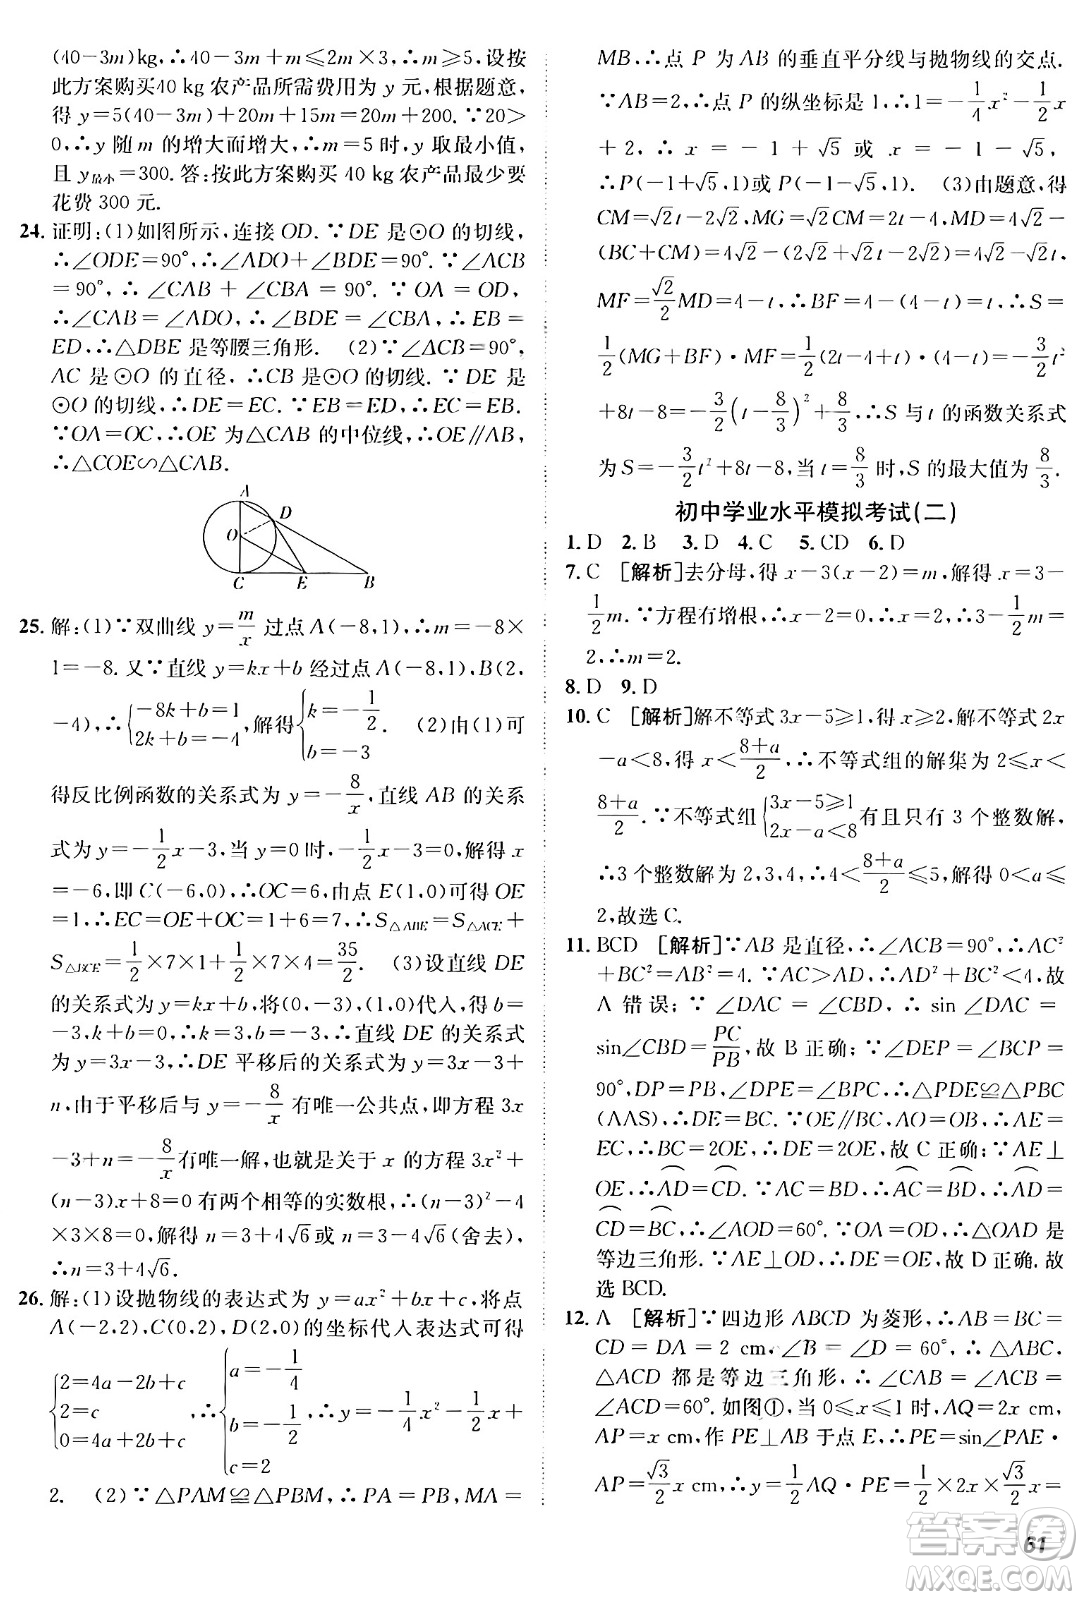 (40-3m)kg,∴40-3m+m≤2m×3,∴m≥5.设按
此方案购买40 kg农产品所需费用为 y 元,根据题意,
得 y=5(40-3m)+20m+15m=20m+200.∵20>
0,∴y 随 m 的增大而增大,∴当 m=5 时,y 取最小值,
且 y最小=300.答:按此方案购买 40 kg农产品最少要
花费 300 元.
24. 证明:(1)如图所示,连接 OD.∵DE 是⊙O 的切线,
∴∠ODE=90°,∴∠ADO+∠BDE=90°.∵∠ACB
=90°,∴∠CAB+∠CBA=90°.∵OA=OD,
∴∠CAB=∠ADO,∴∠BDE=∠CBA,∴EB=
ED,∴△DBE 是等腰三角形. (2)∵∠ACB=90°,
AC 是⊙O 的直径,∴CB 是⊙O 的切线.∵DE 是
⊙O 的切线,∴DE=EC.∵EB=ED,∴EC=EB.
∵OA=OC,∴OE 为△CAB 的中位线,∴OE∥AB,
∴△COE∽△CAB.
A
D
O
C E B
25. 解:(1)∵双曲线 y=m/x 过点 A(-8,1),∴m=-8×
1=-8.又∵直线 y=kx+b 经过点 A(-8,1),B(2,
-4),∴{-8k+b=1 2k+b=-4,解得{k=-1/2 b=-3. (2)由(1)可
得反比例函数的关系式为 y=-8/x,直线 AB 的关系
式为 y=-1/2x-3,当 y=0 时,-1/2x-3=0,解得 x
=-6,即 C(-6,0),∴OC=6,由点 E(1,0)可得 OE
=1,∴EC=OE+OC=1+6=7,∴S△ABE=S△ACE+
S△BCE=1/2×7×1+1/2×7×4=35/2. (3)设直线 DE
的关系式为 y=kx+b,将(0,-3),(1,0)代入,得 b=
-3,k+b=0,∴k=3,b=-3,∴直线 DE 的关系式
为 y=3x-3,∴DE 平移后的关系式为 y=3x-3+
n,由于平移后与 y=-8/x 有唯一公共点,即方程 3x
-3+n=-8/x有唯一解,也就是关于 x 的方程 3x²+
(n-3)x+8=0 有两个相等的实数根,∴(n-3)²-4
×3×8=0,解得 n=3+4√6,n=3-4√6(舍去),
∴n=3+4√6.
26. 解:(1)设抛物线的表达式为 y=ax²+bx+c,将点
A(-2,2),C(0,2),D(2,0)的坐标代入表达式可得
{2=4a-2b+c 2=c 0=4a+2b+c,∴{a=-1/4 b=-1/2 c=2,∴y=-1/4x²-1/2x+
2. (2)∵△PAM≌△PBM,∴PA=PB,MA=
MB,∴点 P 为 AB 的垂直平分线与抛物线的交点.
∵AB=2,∴点 P 的纵坐标是 1,∴1=-1/4x²-1/2x
+2,∴x=-1+√5 或 x=-1-√5,
∴P(-1+√5,1)或 P(-1-√5,1). (3)由题意,得
CM=√2t-2√2,MG=√2CM=2t-4,MD=4√2-
(BC+CM)=4√2-(2√2+√2t-2√2)=4√2-√2t,
MF=√2/2MD=4-t,∴BF=4-4+t=t,∴S=
1/2(MG+BF)·MF=1/2(2t-4+t)·(4-t)=-3/2t²
+8t-8=-3/2(t-8/3)²+8/3,∴S 与 t 的函数关系式
为 S=-3/2t²+8t-8,当 t=8/3时,S 的最大值为 8/3.
初中学业水平模拟考试(二)
1. D 2. B 3. D 4. C 5. CD 6. D
7. C [解析]去分母,得 x-3(x-2)=m,解得 x=3-
1/2m.∵方程有增根,∴x-2=0,∴x=2,∴3-1/2m=
2,∴m=2.
8. D 9. D
10. C [解析]解不等式 3x-5≥1,得 x≥2,解不等式 2x
-a<8,得 x<(8+a)/2,∴不等式组的解集为 2≤x<
(8+a)/2.∵不等式组{3x-5≥1 2x-a<8有且只有 3 个整数解,
∴3 个整数解为 2,3,4,∴4<(8+a)/2≤5,解得 0<a≤
2,故选 C.
11. BCD [解析]∵AB 是直径,∴∠ACB=90°,∴AC²
+BC²=AB²=4.∵AC>AD,∴AD²+BC²<4,故
A 错误;∵∠DAC=∠CBD,∴sin∠DAC=
sin∠CBD=PC/PB,故 B 正确;∵∠DEP=∠BCP=
90°,DP=PB,∠DPE=∠BPC,∴△PDE≌△PBC
(AAS),∴DE=BC.∵OE∥BC,AO=OB,∴AE=
EC,∴BC=2OE,∴DE=2OE,故 C 正确;∵AE⊥
OE,∴AD=CD.∵AC=BD,∴AD=BC,∴AD=
CD=BC,∴∠AOD=60°.∵OA=OD,∴△OAD 是
等边三角形.∵AE⊥OD,∴DE=OE,故 D 正确.故
选 BCD.
12. A [解析]∵四边形 ABCD 为菱形,∴AB=BC=
CD=DA=2 cm,∠B=∠D=60°,∴△ABC,
△ACD 都是等边三角形,∴∠CAB=∠ACB=
∠ACD=60°.如图①,当 0≤x≤1 时,AQ=2x cm,
AP=x cm,作 PE⊥AB 于点 E,∴PE=sin∠PAE·
AP=√3/2x cm,∴y=1/2AQ·PE=1/2×2x×√3/2x=
61
答案圈
MXQE.COM